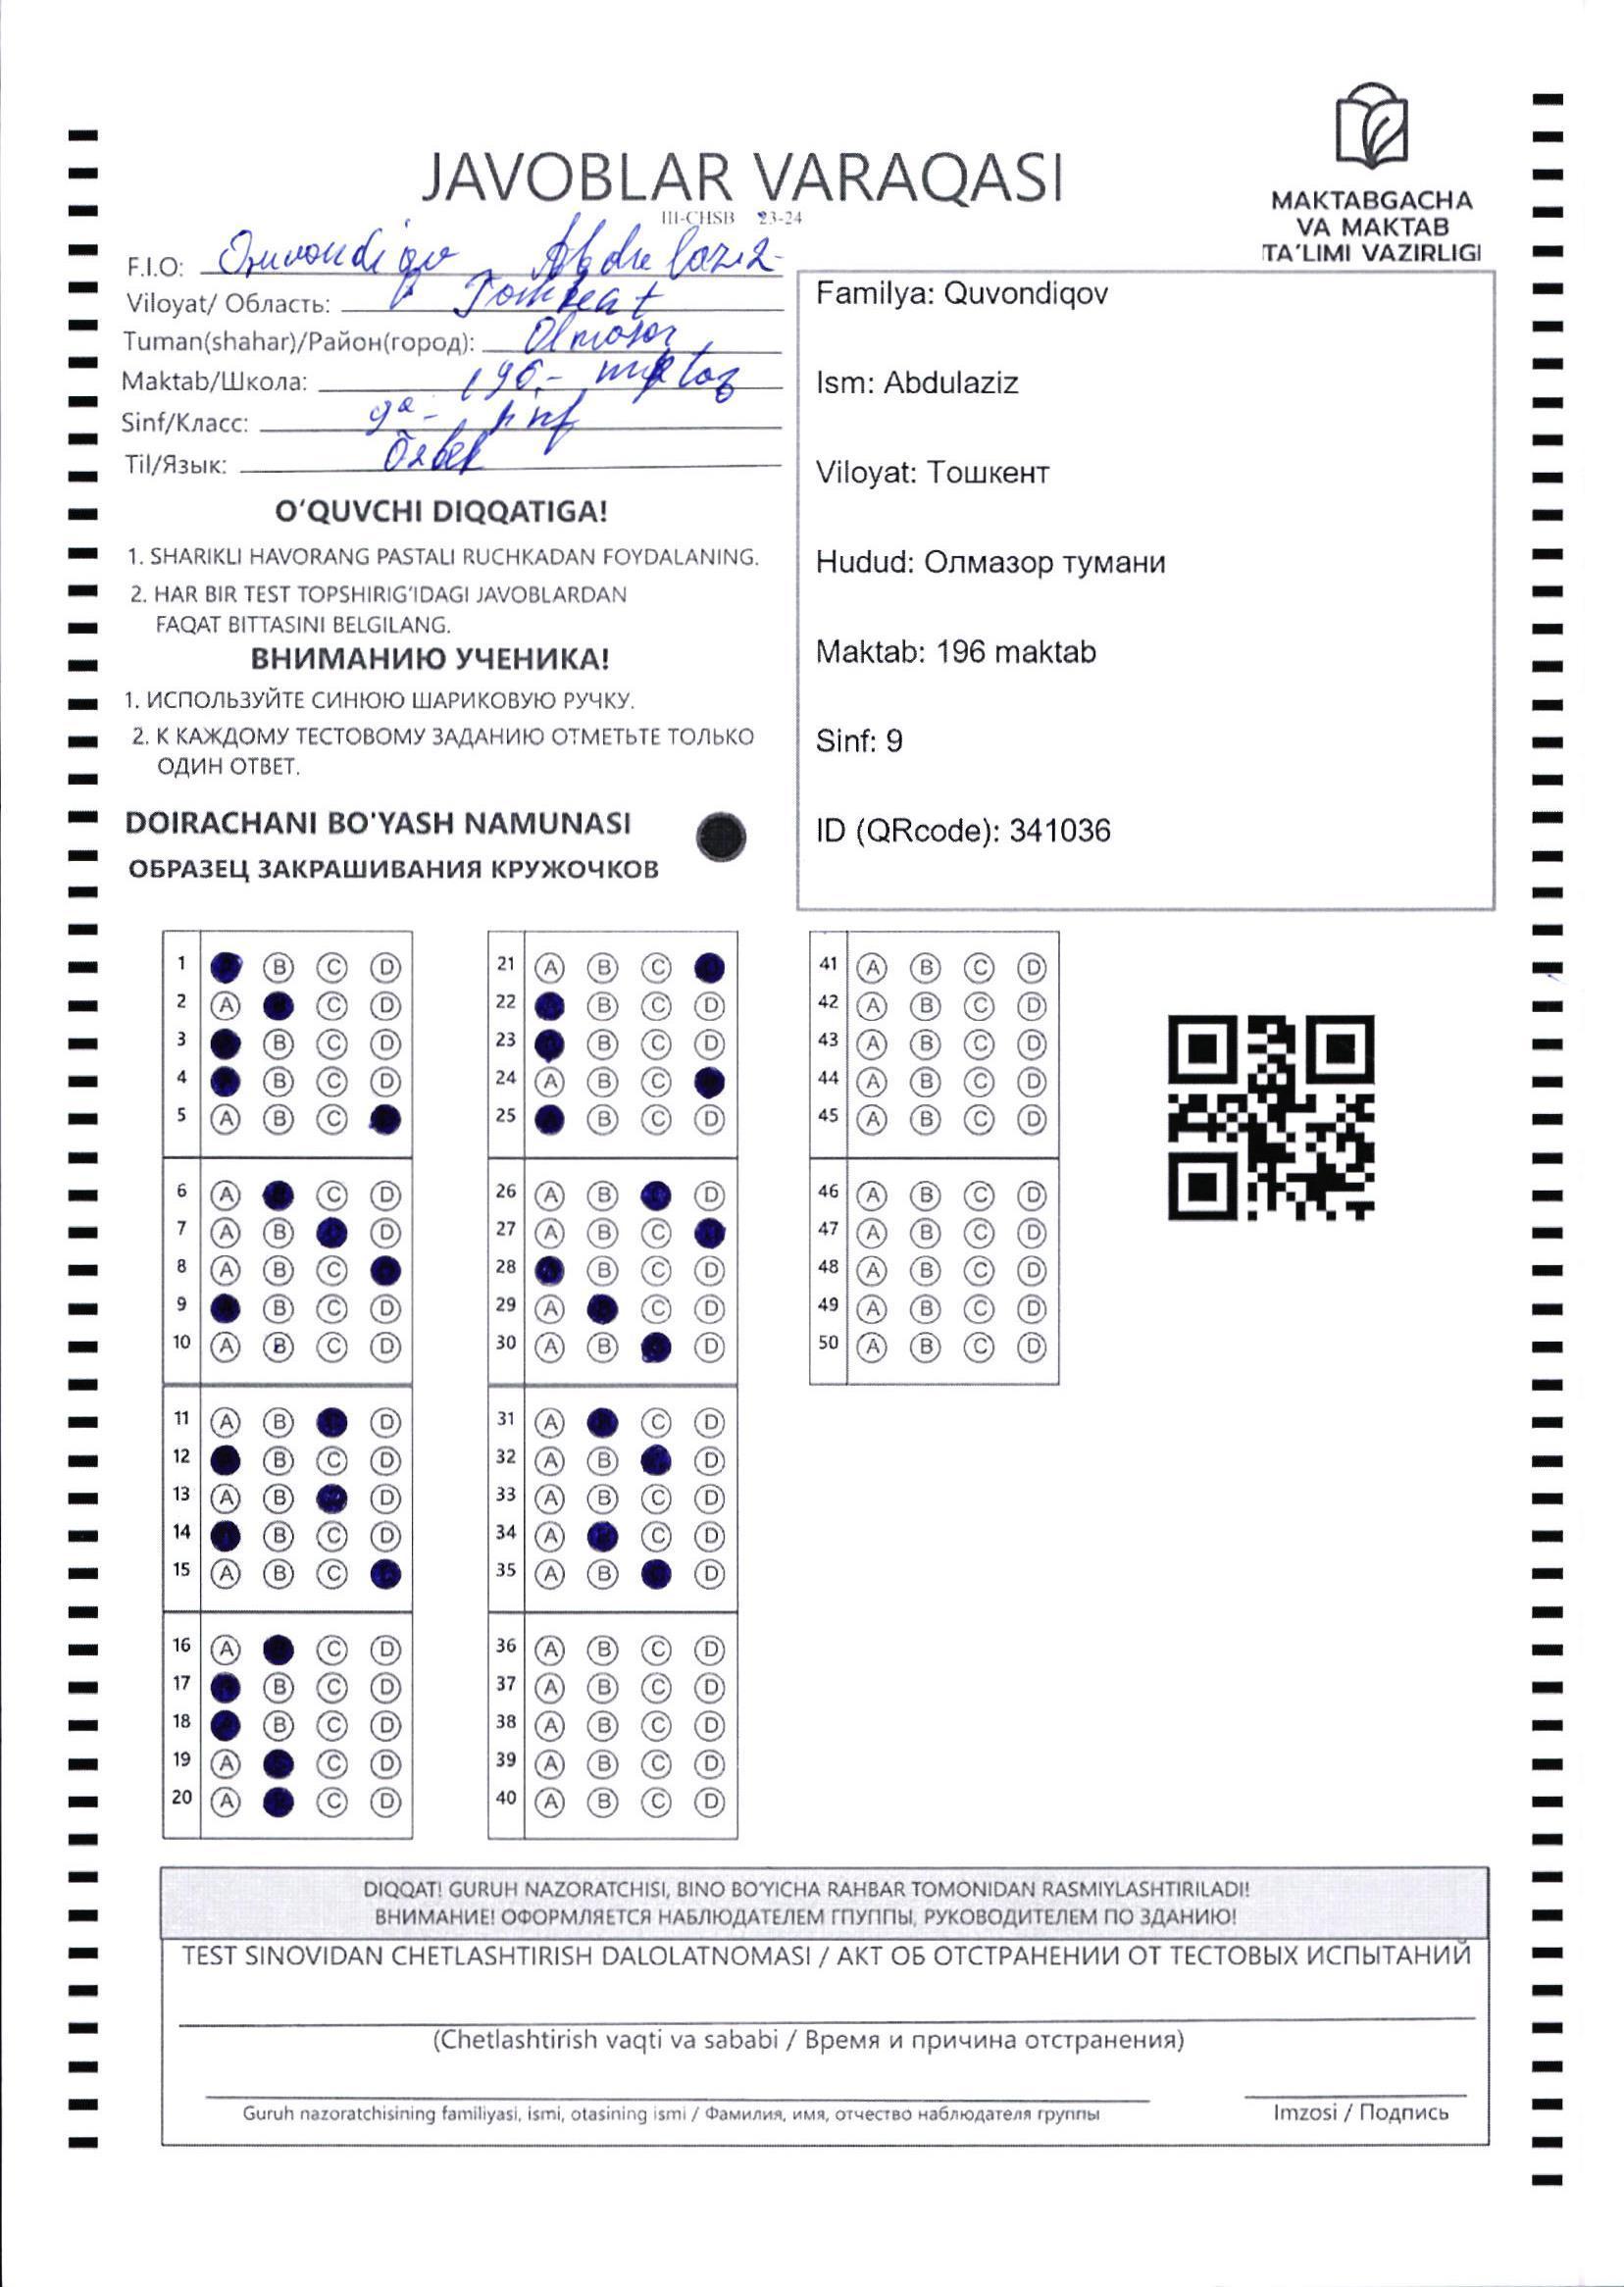 JAVOBLAR VARAQASI
III-CHSB 23-24
MAKTABGACHA
VA MAKTAB
TA'LIMI VAZIRLIGI
F.I.O: Quvondiqov Abdulaziz
Viloyat/ Область: Toshkent
Tuman(shahar)/Район(город): Olmosor
Maktab/Школа: 196 - maktab
Sinf/Класс: 9a - sinf
Til/Язык: Õzbek
Familya: Quvondiqov
Ism: Abdulaziz
Viloyat: Тошкент
Hudud: Олмазор тумани
Maktab: 196 maktab
Sinf: 9
ID (QRcode): 341036
O'QUVCHI DIQQATIGA!
1. SHARIKLI HAVORANG PASTALI RUCHKADAN FOYDALANING.
2. HAR BIR TEST TOPSHIRIG'IDAGI JAVOBLARDAN
FAQAT BITTASINI BELGILANG.
ВНИМАНИЮ УЧЕНИКА!
1. ИСПОЛЬЗУЙТЕ СИНЮЮ ШАРИКОВУЮ РУЧКУ.
2. К КАЖДОМУ ТЕСТОВОМУ ЗАДАНИЮ ОТМЕТЬТЕ ТОЛЬКО
ОДИН ОТВЕТ.
DOIRACHANI BO'YASH NAMUNASI
ОБРАЗЕЦ ЗАКРАШИВАНИЯ КРУЖОЧКОВ
1 B C D
2 A C D
3 B C D
4 B C D
5 A B C
6 A C D
7 A B D
8 A B C
9 B C D
10 A B C D
11 A B D
12 B C D
13 A B D
14 B C D
15 A B C
16 A C D
17 B C D
18 B C D
19 A C D
20 A C D
21 A B C
22 B C D
23 B C D
24 A B C
25 B C D
26 A B D
27 A B C
28 B C D
29 A C D
30 A B D
31 A C D
32 A B D
33 A B C D
34 A C D
35 A B D
36 A B C D
37 A B C D
38 A B C D
39 A B C D
40 A B C D
41 A B C D
42 A B C D
43 A B C D
44 A B C D
45 A B C D
46 A B C D
47 A B C D
48 A B C D
49 A B C D
50 A B C D
DIQQAT! GURUH NAZORATCHISI, BINO BO'YICHA RAHBAR TOMONIDAN RASMIYLASHTIRILADI!
ВНИМАНИЕ! ОФОРМЛЯЕТСЯ НАБЛЮДАТЕЛЕМ ГПУППЫ, РУКОВОДИТЕЛЕМ ПО ЗДАНИЮ!
TEST SINOVIDAN CHETLASHTIRISH DALOLATNOMASI / АКТ ОБ ОТСТРАНЕНИИ ОТ ТЕСТОВЫХ ИСПЫТАНИЙ
(Chetlashtirish vaqti va sababi / Время и причина отстранения)
Guruh nazoratchisining familiyasi, ismi, otasining ismi / Фамилия, имя, отчество наблюдателя группы
Imzosi / Подпись